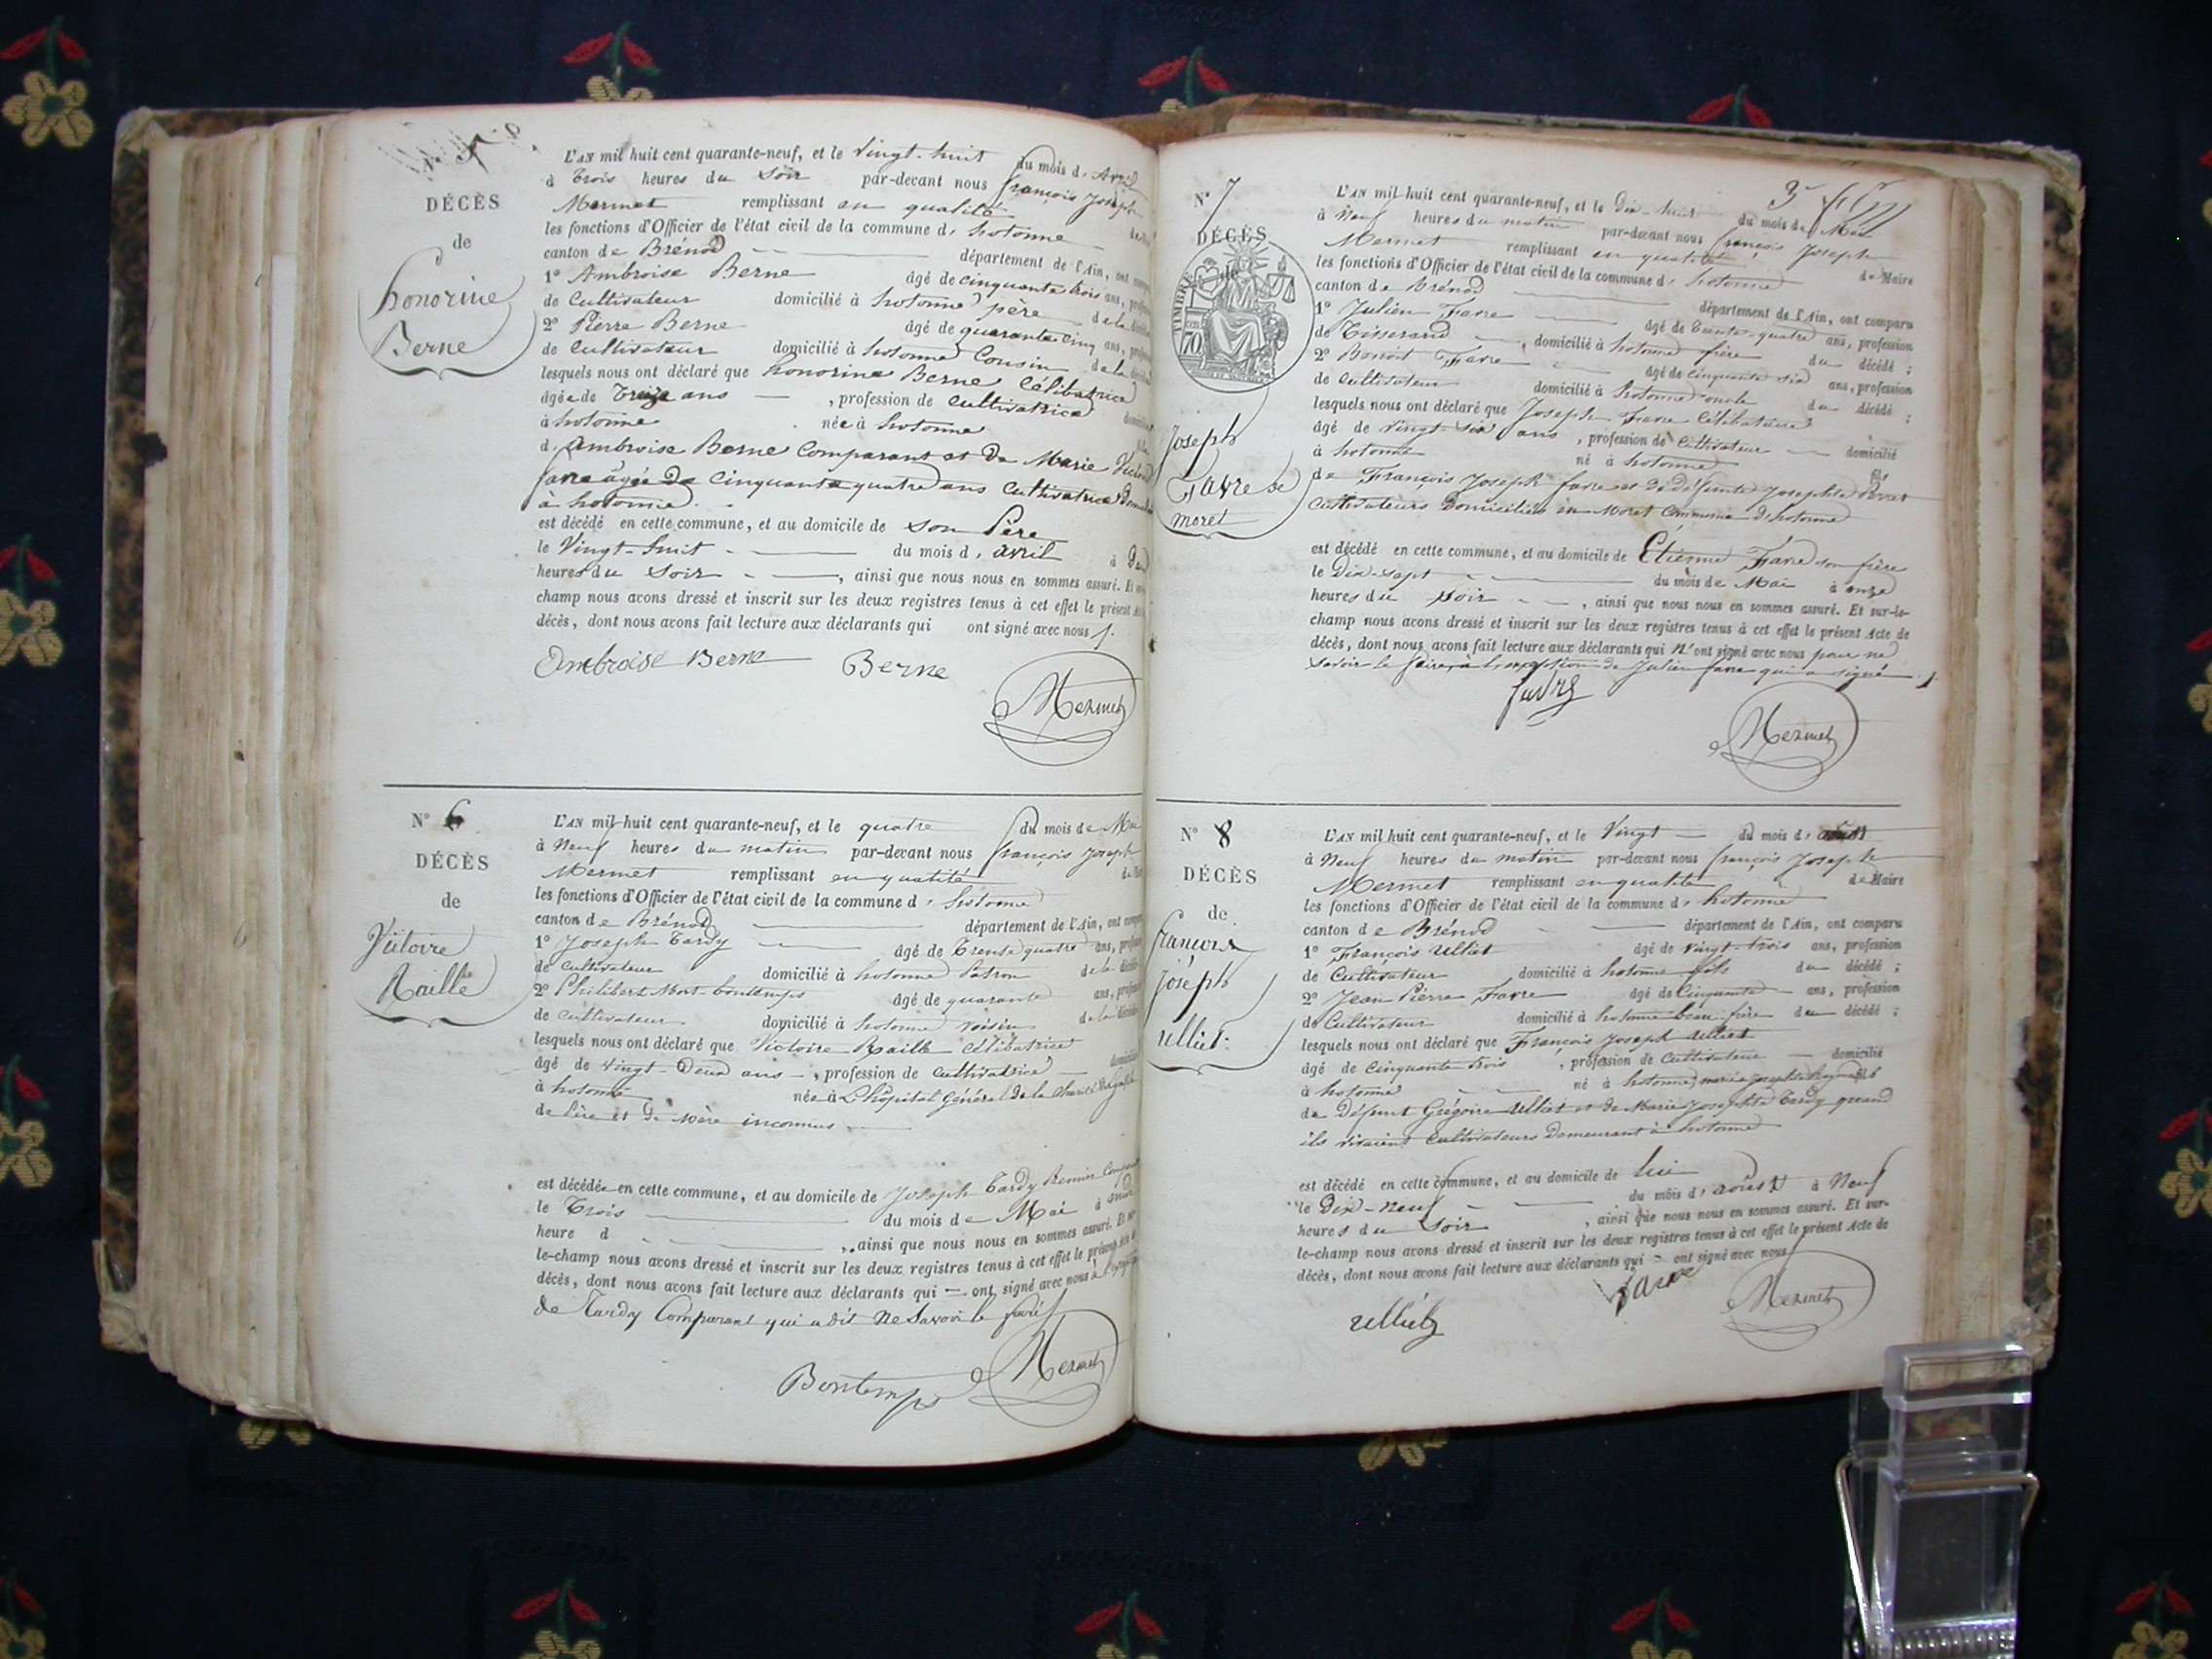 N° 5
DÉCÈS
de
honorine
Berne
L'AN mil huit cent quarante-neuf, et le Vingt-huit du mois d' Avril
à Trois heures du Soir par-devant nous françois Joseph
Mermet remplissant en qualité
les fonctions d'Officier de l'état civil de la commune d' hotonne
canton de Brénod département de l'Ain, ont
1° Ambroise Berne âgé de cinquante trois ans,
de Cultivateur domicilié à hotonne père de la
2° Pierre Berne âgé de quarante cinq ans,
de Cultivateur domicilié à hotonne Cousin de la
lesquels nous ont déclaré que honorine Berne Célibatrice
âgée de Treize ans , profession de Cultivatrice
à hotonne née à hotonne
d' Ambroise Berne Comparant et de Marie
favre âgée de Cinquante quatre ans Cultivatrice
à hotonne.
est décédé en cette commune, et au domicile de son Père
le Vingt-huit du mois d' avril à
heures du Soir , ainsi que nous nous en sommes assuré. Et
champ nous avons dressé et inscrit sur les deux registres tenus à cet effet le présent
décès, dont nous avons fait lecture aux déclarants qui ont signé avec nous
Ambroise Berne Berne
Mermet
N° 6
DÉCÈS
de
Victoire
Raille
L'AN mil huit cent quarante-neuf, et le quatre du mois de Mai
à Neuf heures du matin par-devant nous françois Joseph
Mermet remplissant en qualité
les fonctions d'Officier de l'état civil de la commune d' hotonne
canton de Brénod département de l'Ain, ont
1° Joseph Tardy âgé de Trente quatre ans,
de Cultivateur domicilié à hotonne Patron de la
2° Philibert Mort-bontemps âgé de quarante ans,
de Cultivateur domicilié à hotonne voisin de la
lesquels nous ont déclaré que Victoire Raille Célibatrice
âgé de vingt-Deux ans , profession de Cultivatrice
à hotonne née à L'hôpital Général de la Charité
de Père et de Mère inconnus
est décédée en cette commune, et au domicile de Joseph Tardy Premier
le Trois du mois de Mai à
heure d , ainsi que nous nous en sommes assuré. Et
le-champ nous avons dressé et inscrit sur les deux registres tenus à cet effet le présent
décès, dont nous avons fait lecture aux déclarants qui ont signé avec nous à
de Tardy Comparant qui a dit Ne Savoir le faire
Bontemps Mermet
3
N° 7
DÉCÈS
de
TIMBRE
70
Joseph
favre de
moret
L'AN mil huit cent quarante-neuf, et le Dix-huit du mois de Mai
à Neuf heures du matin par-devant nous françois Joseph
Mermet remplissant en qualité de Maire
les fonctions d'Officier de l'état civil de la commune d' hotonne
canton de Brénod département de l'Ain, ont comparu
1° Julien Favre âgé de Trente-quatre ans, profession
de Tisserand , domicilié à hotonne frère du décédé ;
2° Benoit Favre âgé de Cinquante six ans, profession
de Cultivateur domicilié à hotonne oncle du décédé ;
lesquels nous ont déclaré que Joseph Favre Célibataire
âgé de vingt-six ans , profession de Cultivateur domicilié
à hotonne né à hotonne fils
de François Joseph favre et de défunte Josephte
Cultivateurs Domiciliés en Moret Commune d'hotonne
est décédé en cette commune, et au domicile de Etienne Favre son frère
le Dix-Sept du mois de Mai à onze
heures du Soir , ainsi que nous nous en sommes assuré. Et sur-le-
champ nous avons dressé et inscrit sur les deux registres tenus à cet effet le présent Acte de
décès, dont nous avons fait lecture aux déclarants qui n'ont signé avec nous pour ne
Savoir le faire, à l'exception de Julien favre qui a signé
favre
Mermet
N° 8
DÉCÈS
de
françois
joseph
Ulliet
L'AN mil huit cent quarante-neuf, et le Vingt du mois d' août
à Neuf heures du matin par-devant nous françois Joseph
Mermet remplissant en qualité de Maire
les fonctions d'Officier de l'état civil de la commune d' hotonne
canton de Brénod département de l'Ain, ont comparu
1° François Ulliet âgé de vingt-trois ans, profession
de Cultivateur domicilié à hotonne fils du décédé ;
2° Jean Pierre Favre âgé de Cinquante ans, profession
de Cultivateur domicilié à hotonne beau-frère du décédé ;
lesquels nous ont déclaré que François Joseph Ulliet
âgé de Cinquante-trois , profession de Cultivateur domicilié
à hotonne né à hotonne marié à Josephte fils
de Défunt Grégoire Ulliet et de Marie Josephte Tardy quand
ils vivaient Cultivateurs Demeurant à hotonne
est décédé en cette commune, et au domicile de lui
le Dix-neuf du mois d' août à Neuf
heures du Soir , ainsi que nous nous en sommes assuré. Et sur-
le-champ nous avons dressé et inscrit sur les deux registres tenus à cet effet le présent Acte de
décès, dont nous avons fait lecture aux déclarants qui ont signé avec nous
Ulliet favre Mermet